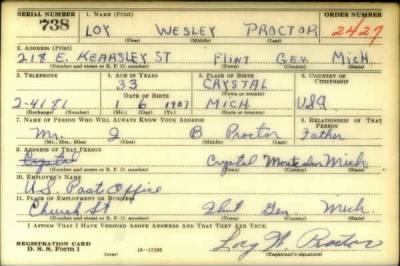 SERIAL NUMBER 1. NAME (Print) ORDER NUMBER
738 LOY WESLEY PROCTOR 2427
(First) (Middle) (Last)
2. ADDRESS (Print)
218 E. KEARSLEY ST FLINT GEN. MICH.
(Number and street or R. F. D. number) (Town) (County) (State)
3. TELEPHONE 4. AGE IN YEARS 5. PLACE OF BIRTH 6. COUNTRY OF CITIZENSHIP
33 CRYSTAL
DATE OF BIRTH (Town or county)
2-4181 1 6 1907 MICH USA
(Exchange) (No.) (Mo.) (Day) (Yr.) (State or country)
7. NAME OF PERSON WHO WILL ALWAYS KNOW YOUR ADDRESS 8. RELATIONSHIP OF THAT PERSON
Mr. J B Proctor Father
(Mr., Mrs., Miss) (First) (Middle) (Last)
9. ADDRESS OF THAT PERSON
Crystal Crystal Mich
(Number and street or R. F. D. number) (Town) (County) (State)
10. EMPLOYER'S NAME
U.S. Post Office
11. PLACE OF EMPLOYMENT OR BUSINESS
Church St Flint Gen. Mich.
(Number and street or R. F. D. number) (Town) (County) (State)
I AFFIRM THAT I HAVE VERIFIED ABOVE ANSWERS AND THAT THEY ARE TRUE.
REGISTRATION CARD
D. S. S. Form 1 Loy W. Proctor
(Registrant's signature)